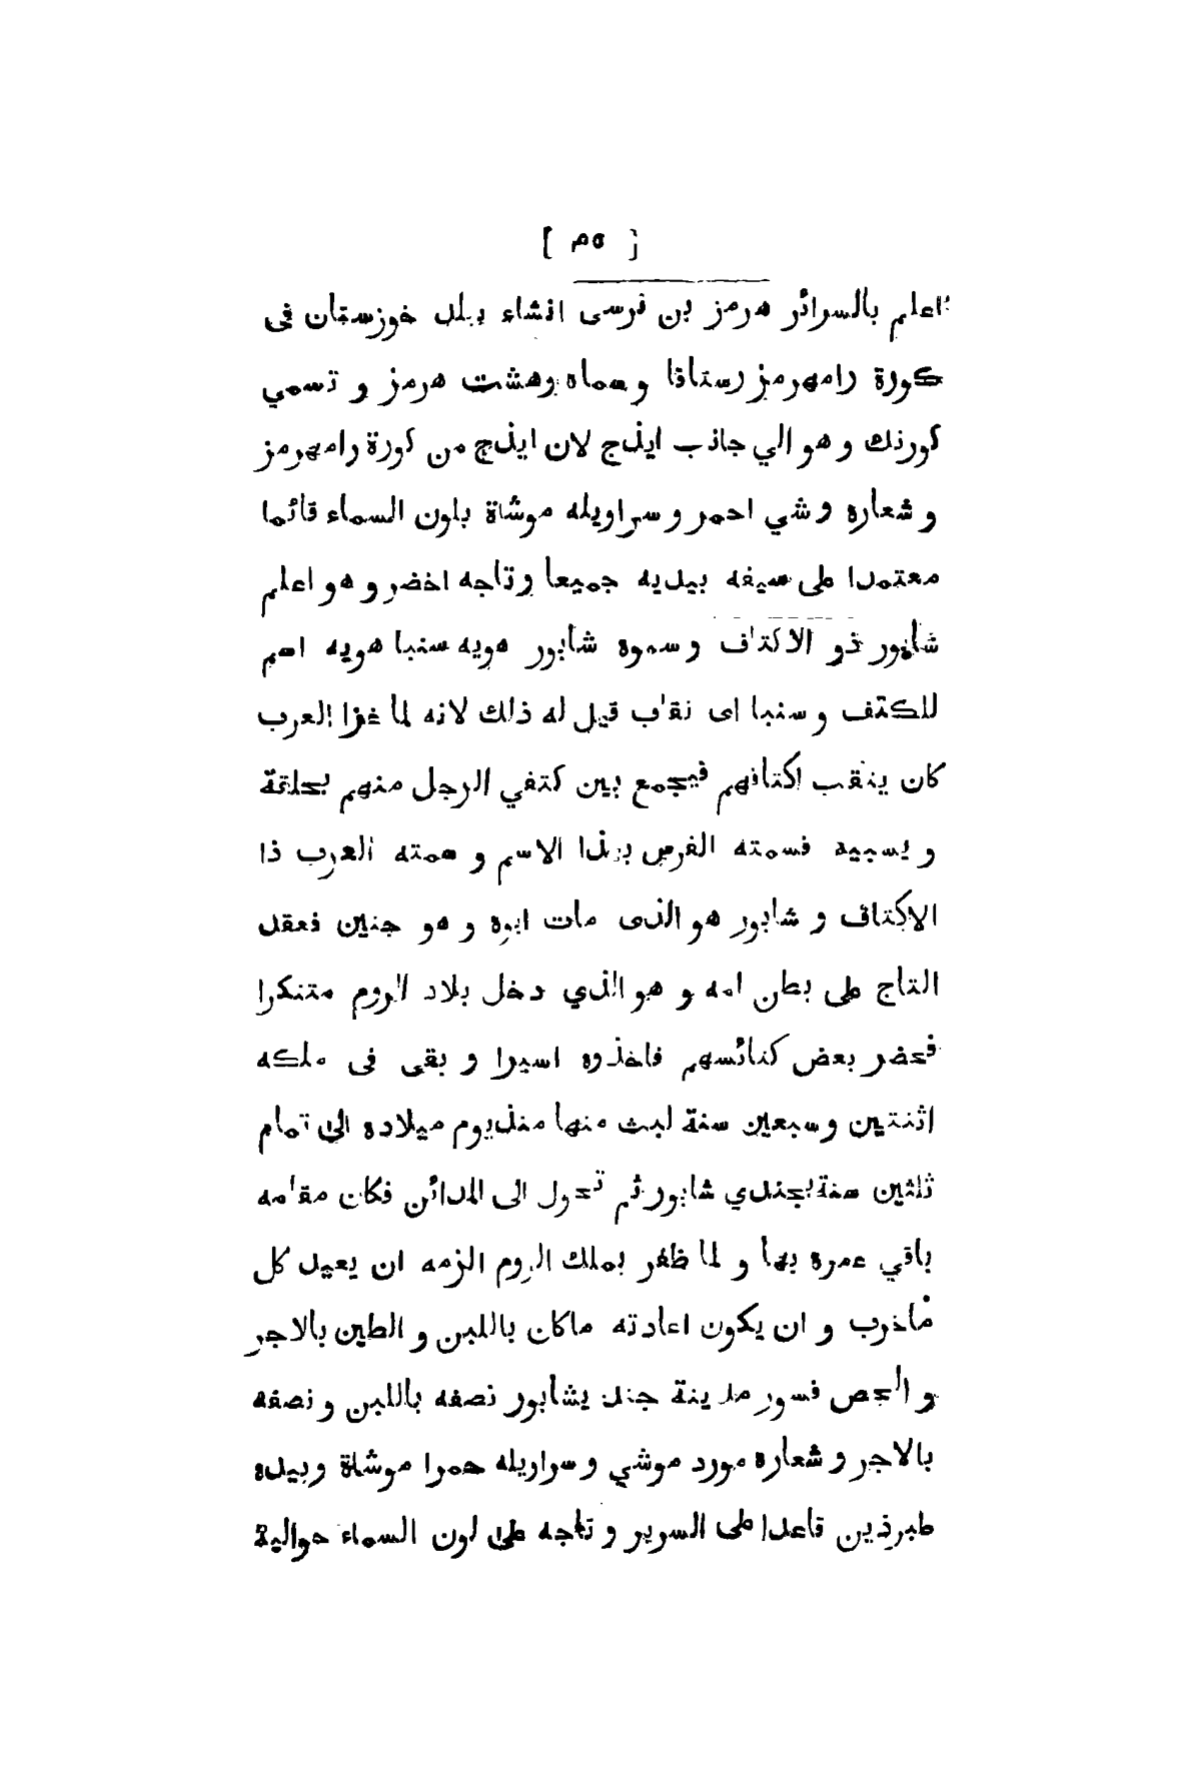 [ ٥٣ ]
اعلم بالسرائر هرمز بن نرسى انشاء ببلد خوزستان فى
كورة رامهرمز رستاقا وسماه وهشت هرمز و تسمي
كورنك و هو الي جانب ايذج لان ايذج من كورة رامهرمز
و شعاره وشي احمر و سراويله موشاة بلون السماء قائما
معتمدا على سيفه بيديه جميعا وتاجه اخضر و هو اعلم
شابور ذو الاكتاف وسموه شابور هويه سنبا هويه اسم
للكتف و سنبا اى نقاب قيل له ذلك لانه لما غزا العرب
كان ينقب اكتافهم فيجمع بين كتفي الرجل منهم بحلقة
و يسبيه فسمته الفرس بهذا الاسم و سمته العرب ذا
الاكتاف و شابور هو الذى مات ابوه و هو جنين فعقد
التاج على بطن امه و هو الذي دخل بلاد الروم متنكرا
فحضر بعض كنائسهم فاخذوه اسيرا و بقى فى ملكه
اثنتين وسبعين سنة لبث منها منذيوم ميلاده الى تمام
ثلثين سنة بجندي شابور ثم تحول الى المدائن فكان مقامه
باقي عمره بها و لما ظفر بملك الروم الزمه ان يعيد كل
ماخرب و ان يكون اعادته ماكان باللبن و الطين بالاجر
و الجص فسور مدينة جند يشابور نصفه باللبن و نصفه
بالاجر و شعاره مورد موشي و سراويله حمرا موشاة وبيده
طبرزين قاعدا على السرير و تاجه على لون السماء حوالية